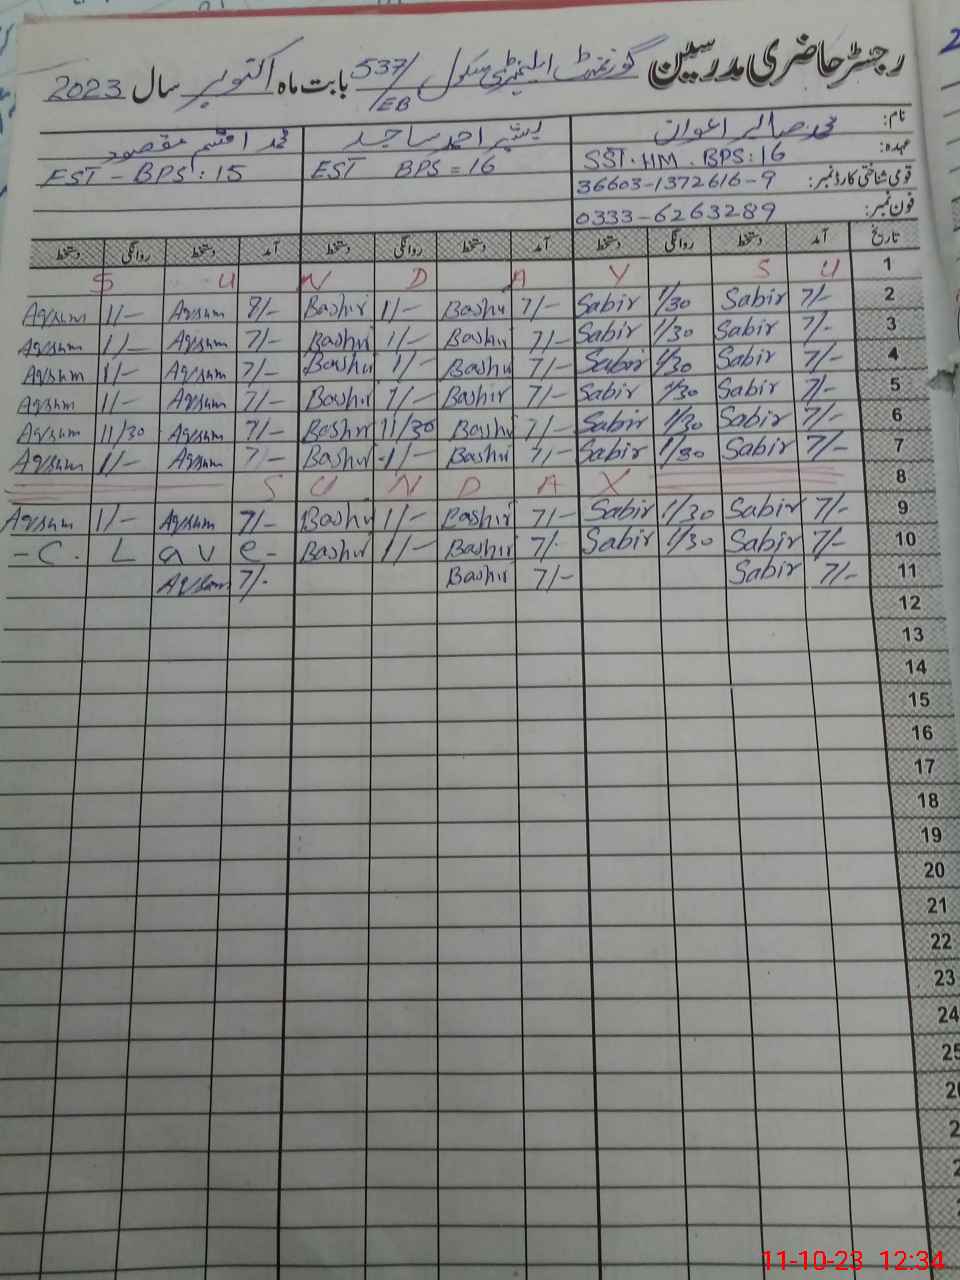 رجسٹر حاضری مدرسین گورنمنٹ ایلیمنٹری سکول 537/EB بابت ماہ اکتوبر سال 2023
نام: محمد صابر اعوان بشیر احمد ساجد محمد اقسم مقصود
عہدہ: SST.HM. BPS:16 EST BPS = 16 EST - BPS: 15
قومی شناختی کارڈ نمبر: 36603-1372616-9
فون نمبر: 0333-6263289
تاریخ آمد دستخط روانگی دستخط آمد دستخط روانگی دستخط آمد دستخط روانگی دستخط
S U N D A Y S U 1
Aqsam 1/- Aqsam 8/- Bashir 1/- Bashir 7/- Sabir 1/30 Sabir 7/- 2
Aqsam 1/- Aqsam 7/- Bashir 1/- Bashir 7/- Sabir 1/30 Sabir 7/- 3
Aqsam 1/- Aqsam 7/- Bashir 1/- Bashir 7/- Sabir 1/30 Sabir 7/- 4
Aqsam 1/- Aqsam 7/- Bashir 1/- Bashir 7/- Sabir 1/30 Sabir 7/- 5
Aqsam 11/30 Aqsam 7/- Bashir 11/30 Bashir 7/- Sabir 1/30 Sabir 7/- 6
Aqsam 1/- Aqsam 7/- Bashir 1/- Bashir 7/- Sabir 1/30 Sabir 7/- 7
S U N D A Y 8
Aqsam 1/- Aqsam 7/- Bashir 1/- Bashir 7/- Sabir 1/30 Sabir 7/- 9
- C. L a v e - Bashir 1/- Bashir 7/- Sabir 1/30 Sabir 7/- 10
Aqsam 7/- Bashir 7/- Sabir 7/- 11
12
13
14
15
16
17
18
19
20
21
22
23
24
25
11-10-23 12:34